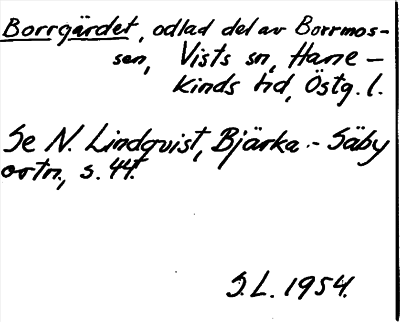 Borrgärdet, odlad del av Borrmos-
sen, Vists sn, Hane-
kinds hd, Östg. l.
Se N. Lindqvist, Bjärka-Säby
ortn., s. 44.
S.L. 1954.